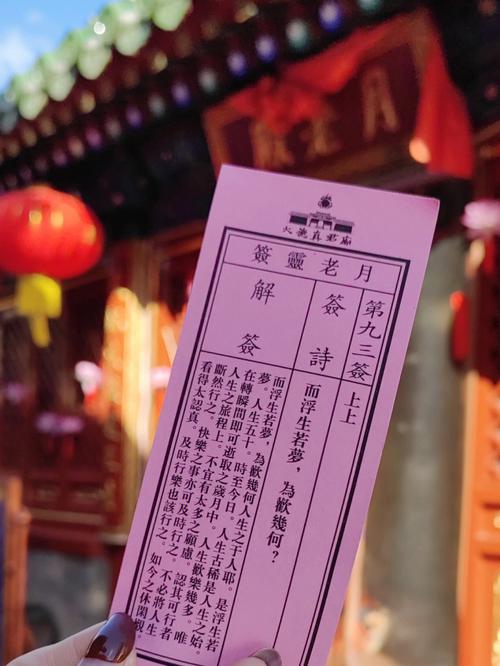 月老殿
火德真君廟
月老靈簽
第九三簽 上上
簽詩
而浮生若夢，為歡幾何？
解簽
而浮生若夢，為歡幾何人生之于人耶。是浮生若
夢。人生五十。時至今日。人生古稀是人生之始。
在轉瞬間即可逝取之歲月中。人生歡樂幾多。唯
人生之旅程上。不宜有太多之顧慮。認其可行者
斷然行之。快樂之事亦可及時行之。不必將人生
看得太認真。及時行樂也該行之。如今之休閑觀。